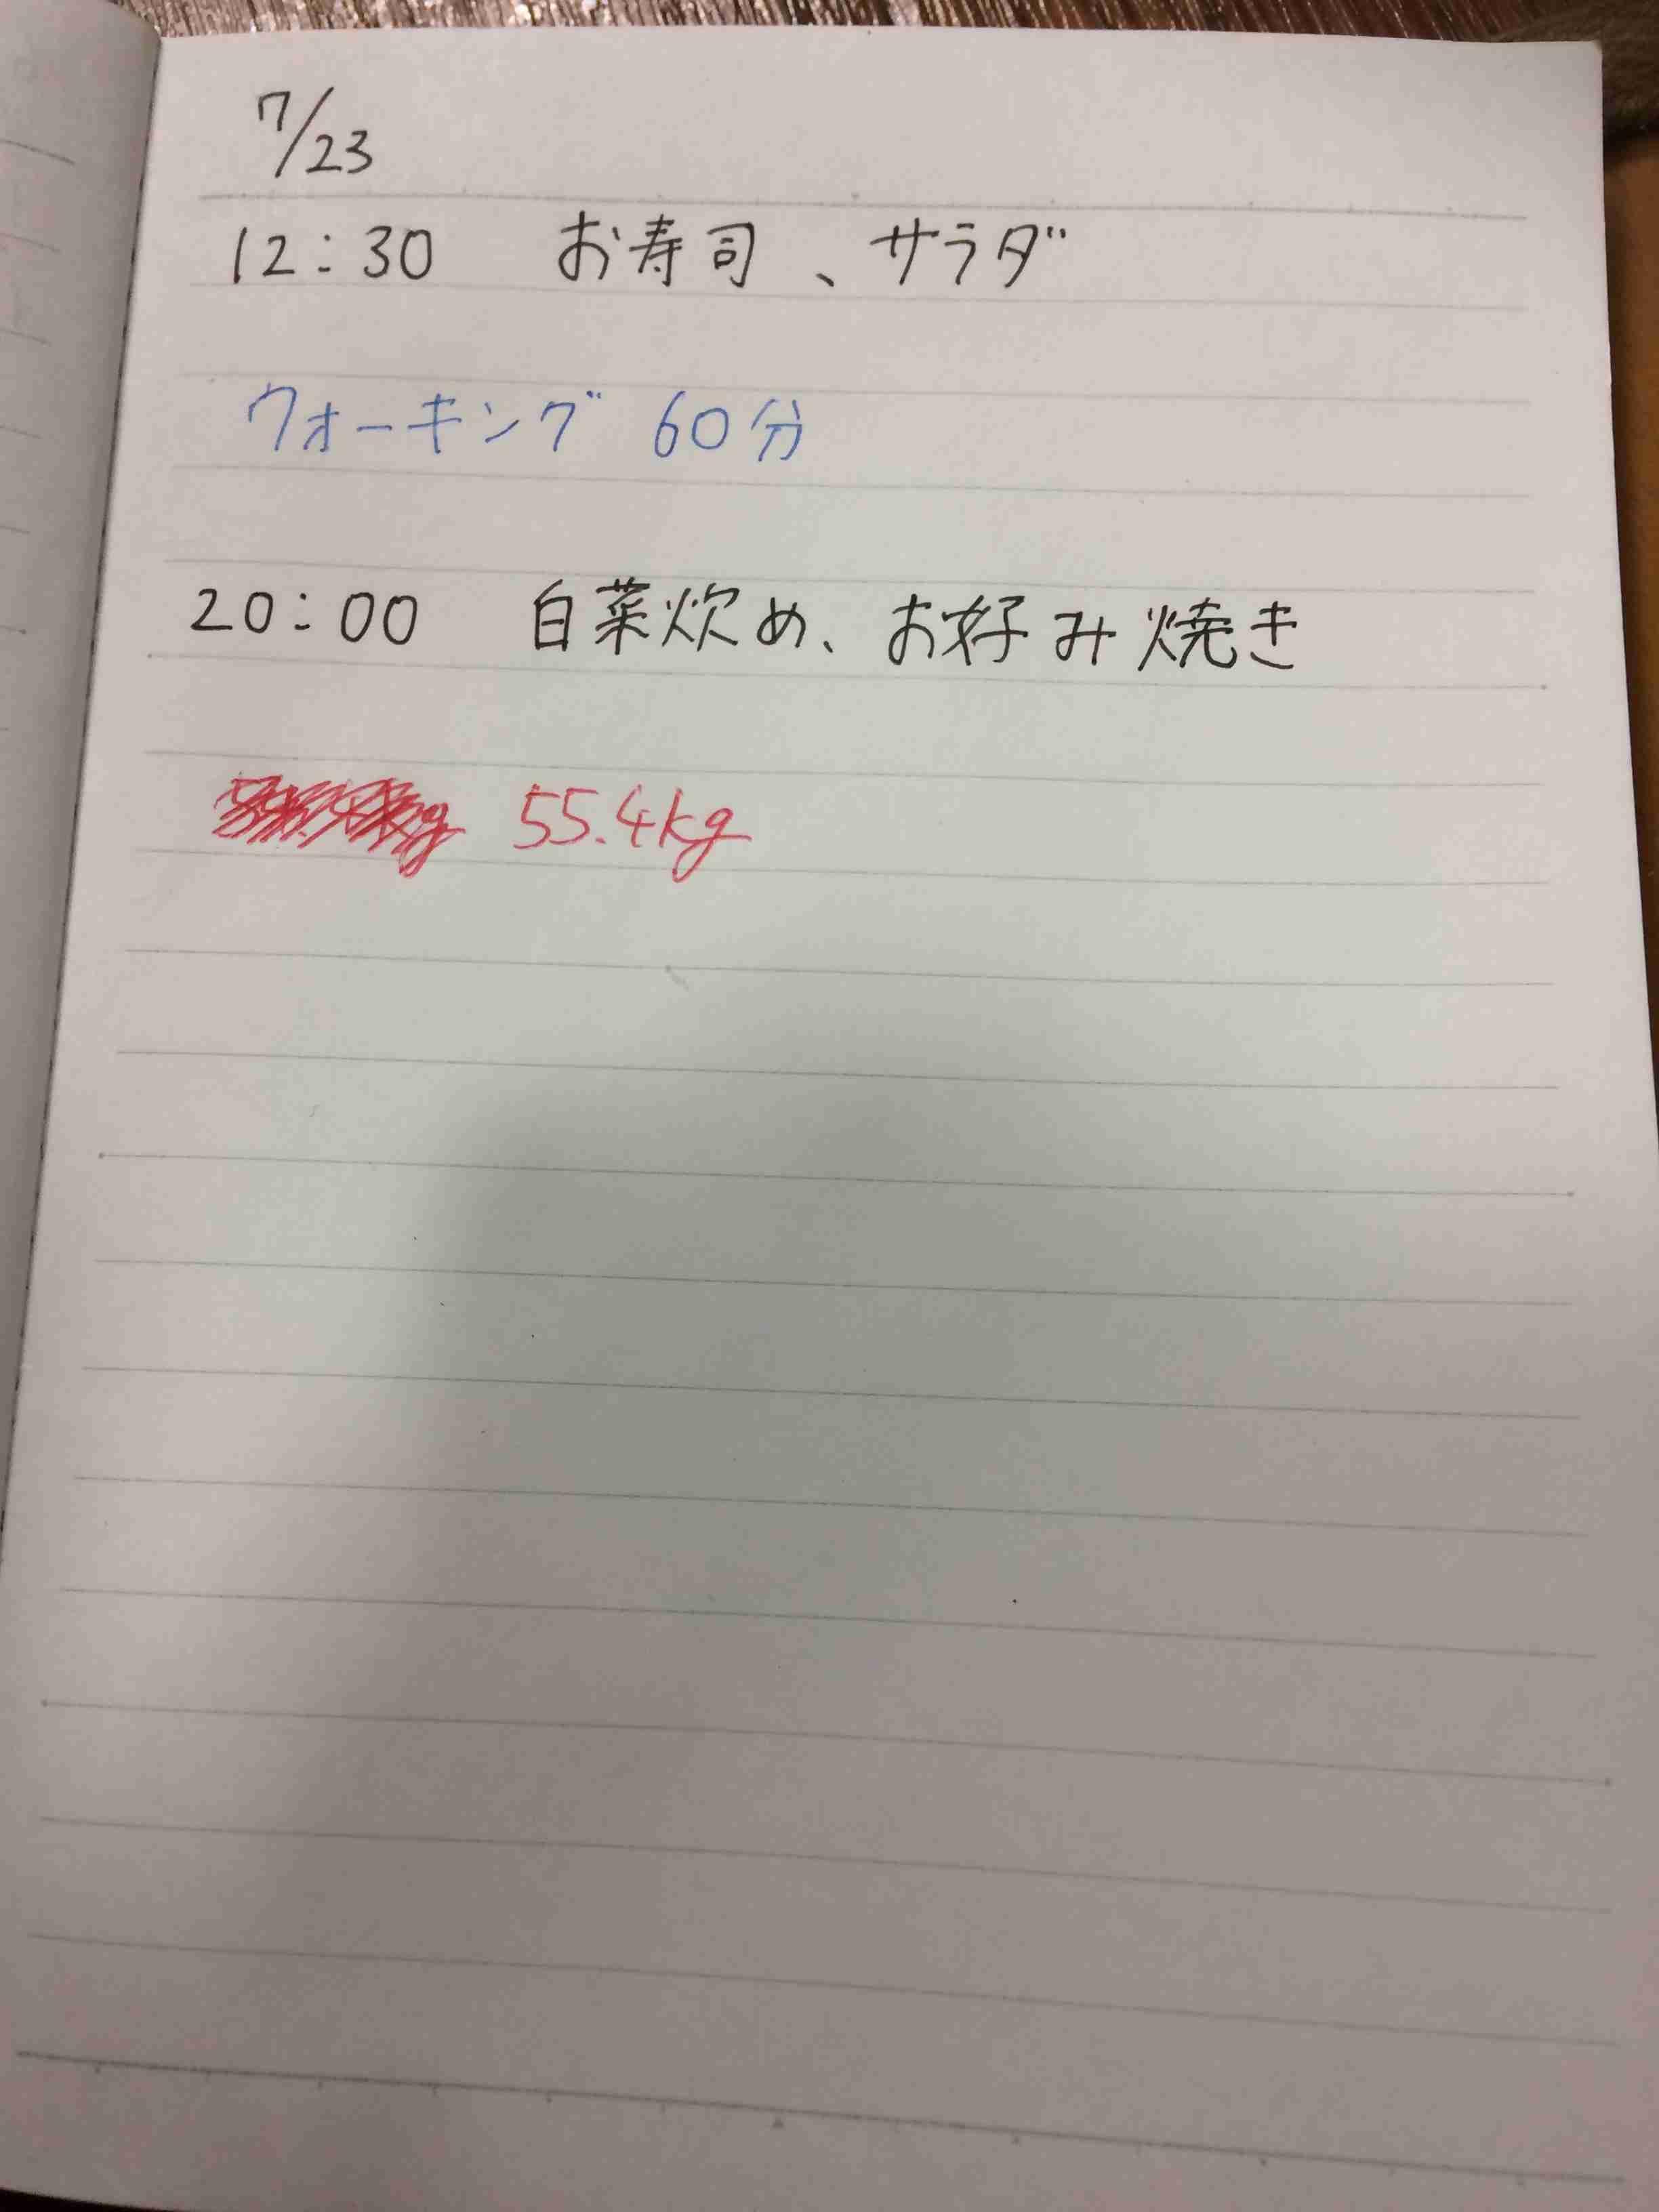 7/23
12:30 お寿司、サラダ
ウォーキング 60分
20:00 白菜炊め、お好み焼き
55.4kg